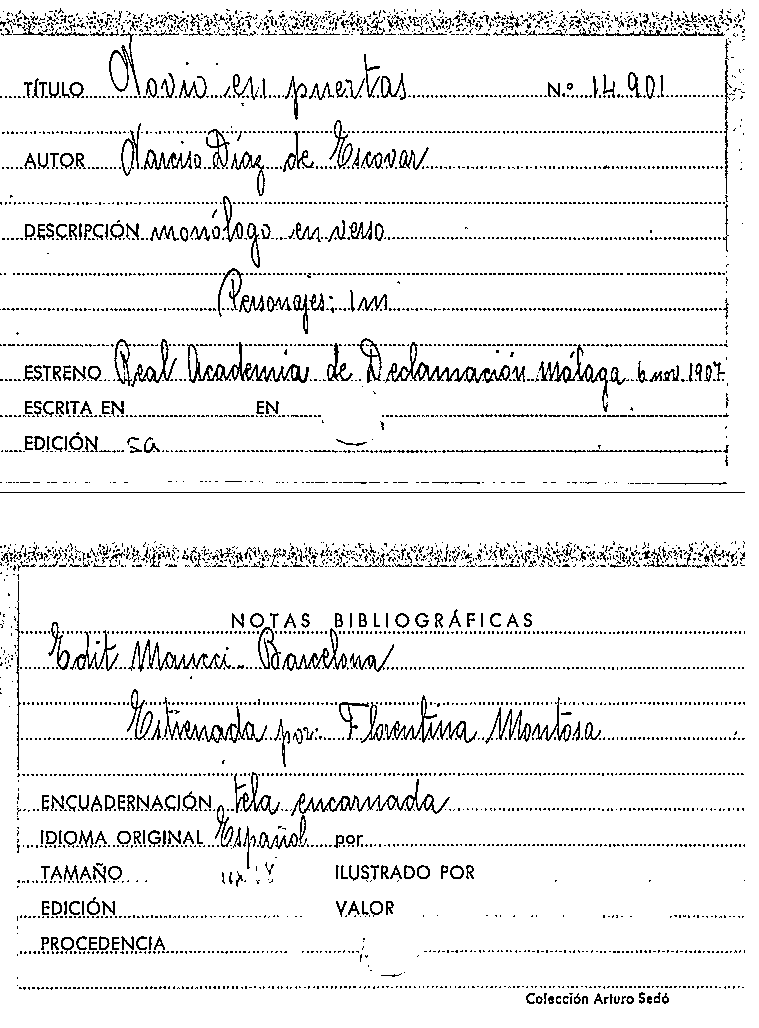 TÍTULO Novio en puertas N.º 14.901
AUTOR Narciso Díaz de Escovar
DESCRIPCIÓN monólogo en verso
Personajes: 1 m
ESTRENO Real Academia de Declamación málaga 6 nov. 1907
ESCRITA EN EN
EDICIÓN sa
NOTAS BIBLIOGRÁFICAS
Edit Maucci - Barcelona
Estrenada por: Florentina Montosa
ENCUADERNACIÓN tela encarnada
IDIOMA ORIGINAL Español por
TAMAÑO ILUSTRADO POR
EDICIÓN VALOR
PROCEDENCIA
Colección Arturo Sedó